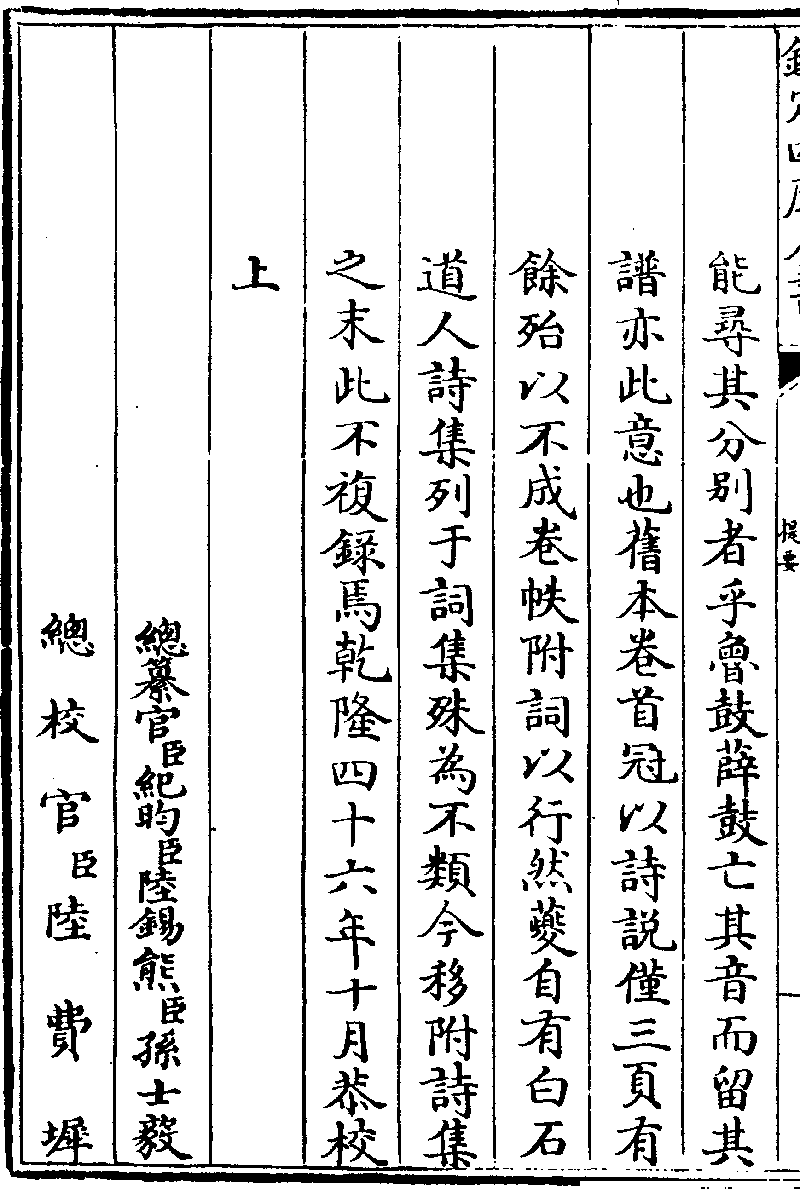 欽定四庫全書
提要
能尋其分別者乎魯鼓薛鼓亡其音而留其
譜亦此意也舊本卷首冠以詩説僅三頁有
餘殆以不成卷帙附詞以行然夔自有白石
道人詩集列于詞集殊為不類今移附詩集
之末此不複錄焉乾隆四十六年十月恭校
上
總纂官臣紀昀臣陸錫熊臣孫士毅
總校官臣陸費墀